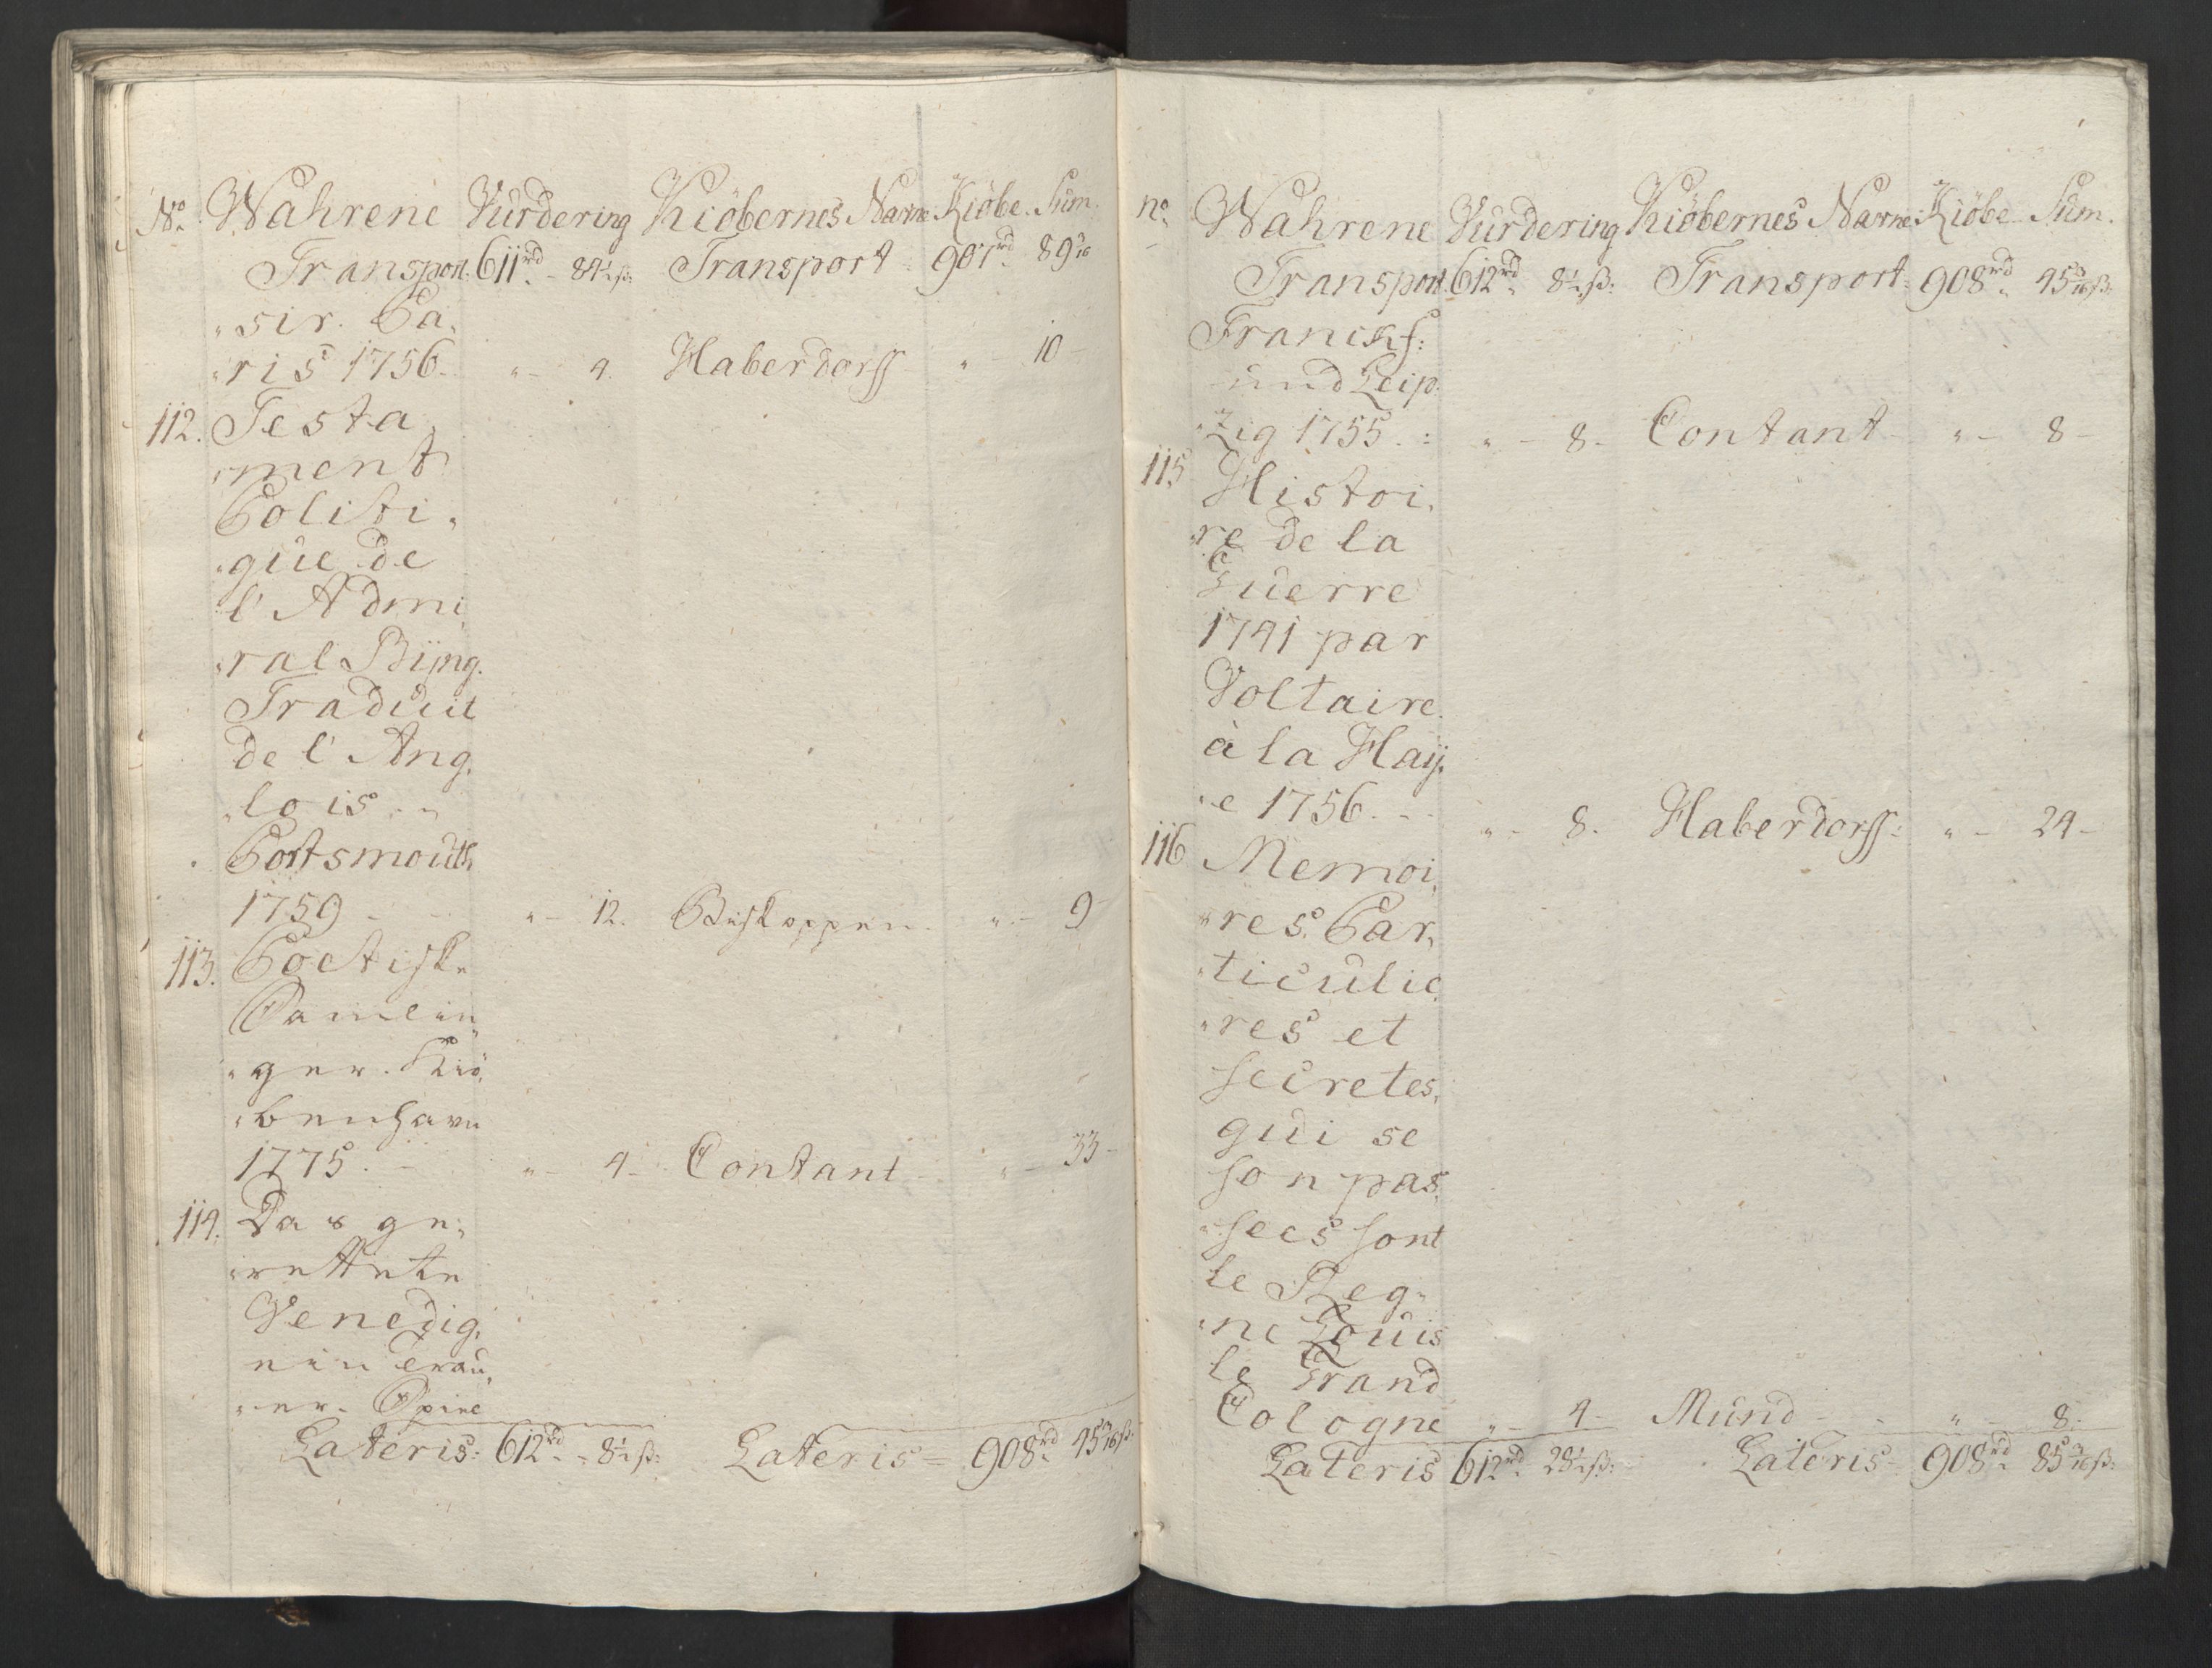 No. Wahrene Vurdering Kiöbernes Narne Kiöbe. Sum.
Transport. 611rd. - 84½ß: Transport - 901rd. 89 3/16
"sir. Pa,
"ris 1756. " - 4. Haberdorff " - 10 -
112. Testa,
"ment
Politi,
"que de
l'Admi,
"ral Bÿng.
Traduit
de l'Ang,
"lois. "
Portsmouth,
1759 - - " - 12. Biskoppen. " - 9 -
113. Poetiske
Samlin,
"ger. Kiö,
"benhavn
1775. - " - 4 - Contant - " - 33 -
114. Das ge,
"rettete
Venedig,
ein Trau,
"er- Spiel
Lateris: 612rd. " 8½ß: Lateris = 908rd. 45 3/16ß:
no. Wahrene Vurdering Kiöbernes Narne: Kiöbe - Sum.
Transport. 612rd. 8½ß: Transport: 908rd. 45 3/16ß:
Franckf:
und Leip,
"Zig 1755. : " - 8 - Contant - " - 8 -
115 Histoi,
"re de la
Guerre
1741 par
Voltaire.
à la Haÿ,
"e 1756. - - " - 8. Haberdorff: " - 24 -
116 Memoi,
"res Par,
"ticulie,
"res et
secretes,
qui se
son pas,
"sees sont
le Reg,
"ne Louis
le Grand
Cologne " - 4 - Mund - - " - 8 -
Lateris 612rd. 28½ß: Lateris - 908rd. 85 3/16ß: